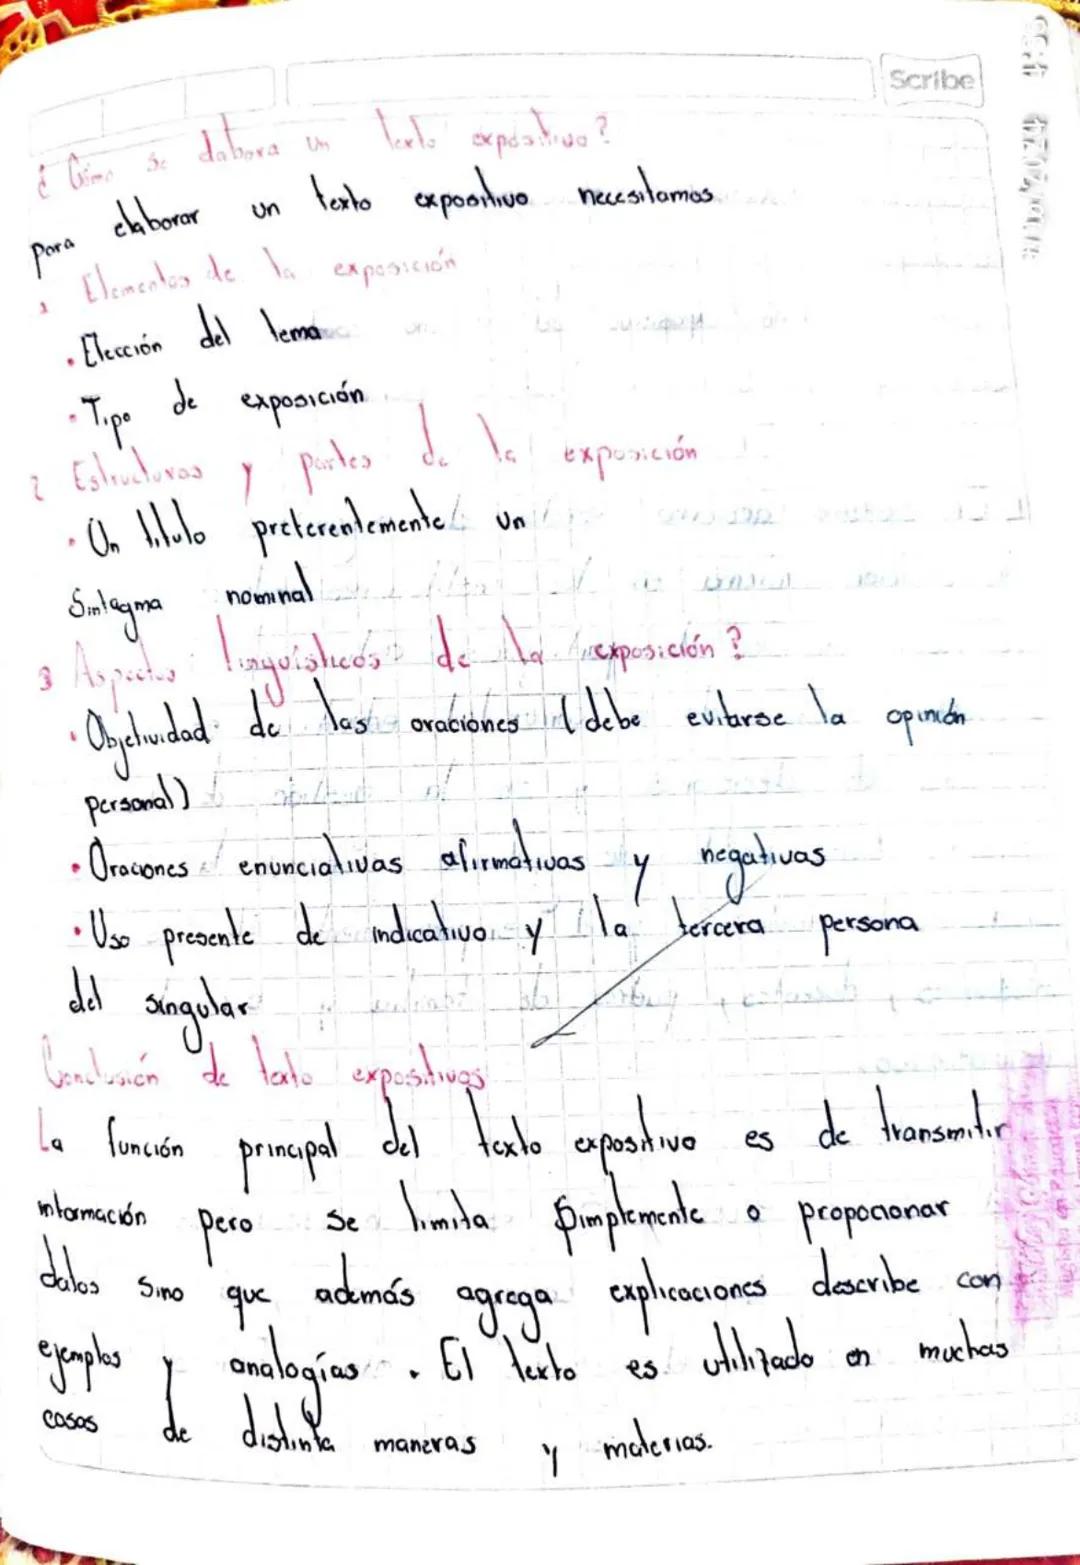 Scribe
¿Cómo se elabora un texto expositivo?
para elaborar un texto expositivo necesitamos
1 Elementos de la exposición
• Elección del tema
• Tipo de exposición
2 Estructuras y partes de la exposición
• Un titulo preferentemente un
Sintagma nominal
3 Aspectos lingüísticos de la exposición?
• Objetividad de las oraciónes (debe evitarse la opinión
personal)
• Oraciones enunciativas afirmativas y negativas
• Uso presente de indicativo y la tercera persona
del singular
Conclusión de texto expositivos
La función principal del texto expositivo es de transmitir
información pero se limita simplemente a propocionar
datos sino que además agrega explicaciones describe con
ejemplos y analogías. El texto es utilizado en muchas
cosas de distinta maneras y materias.